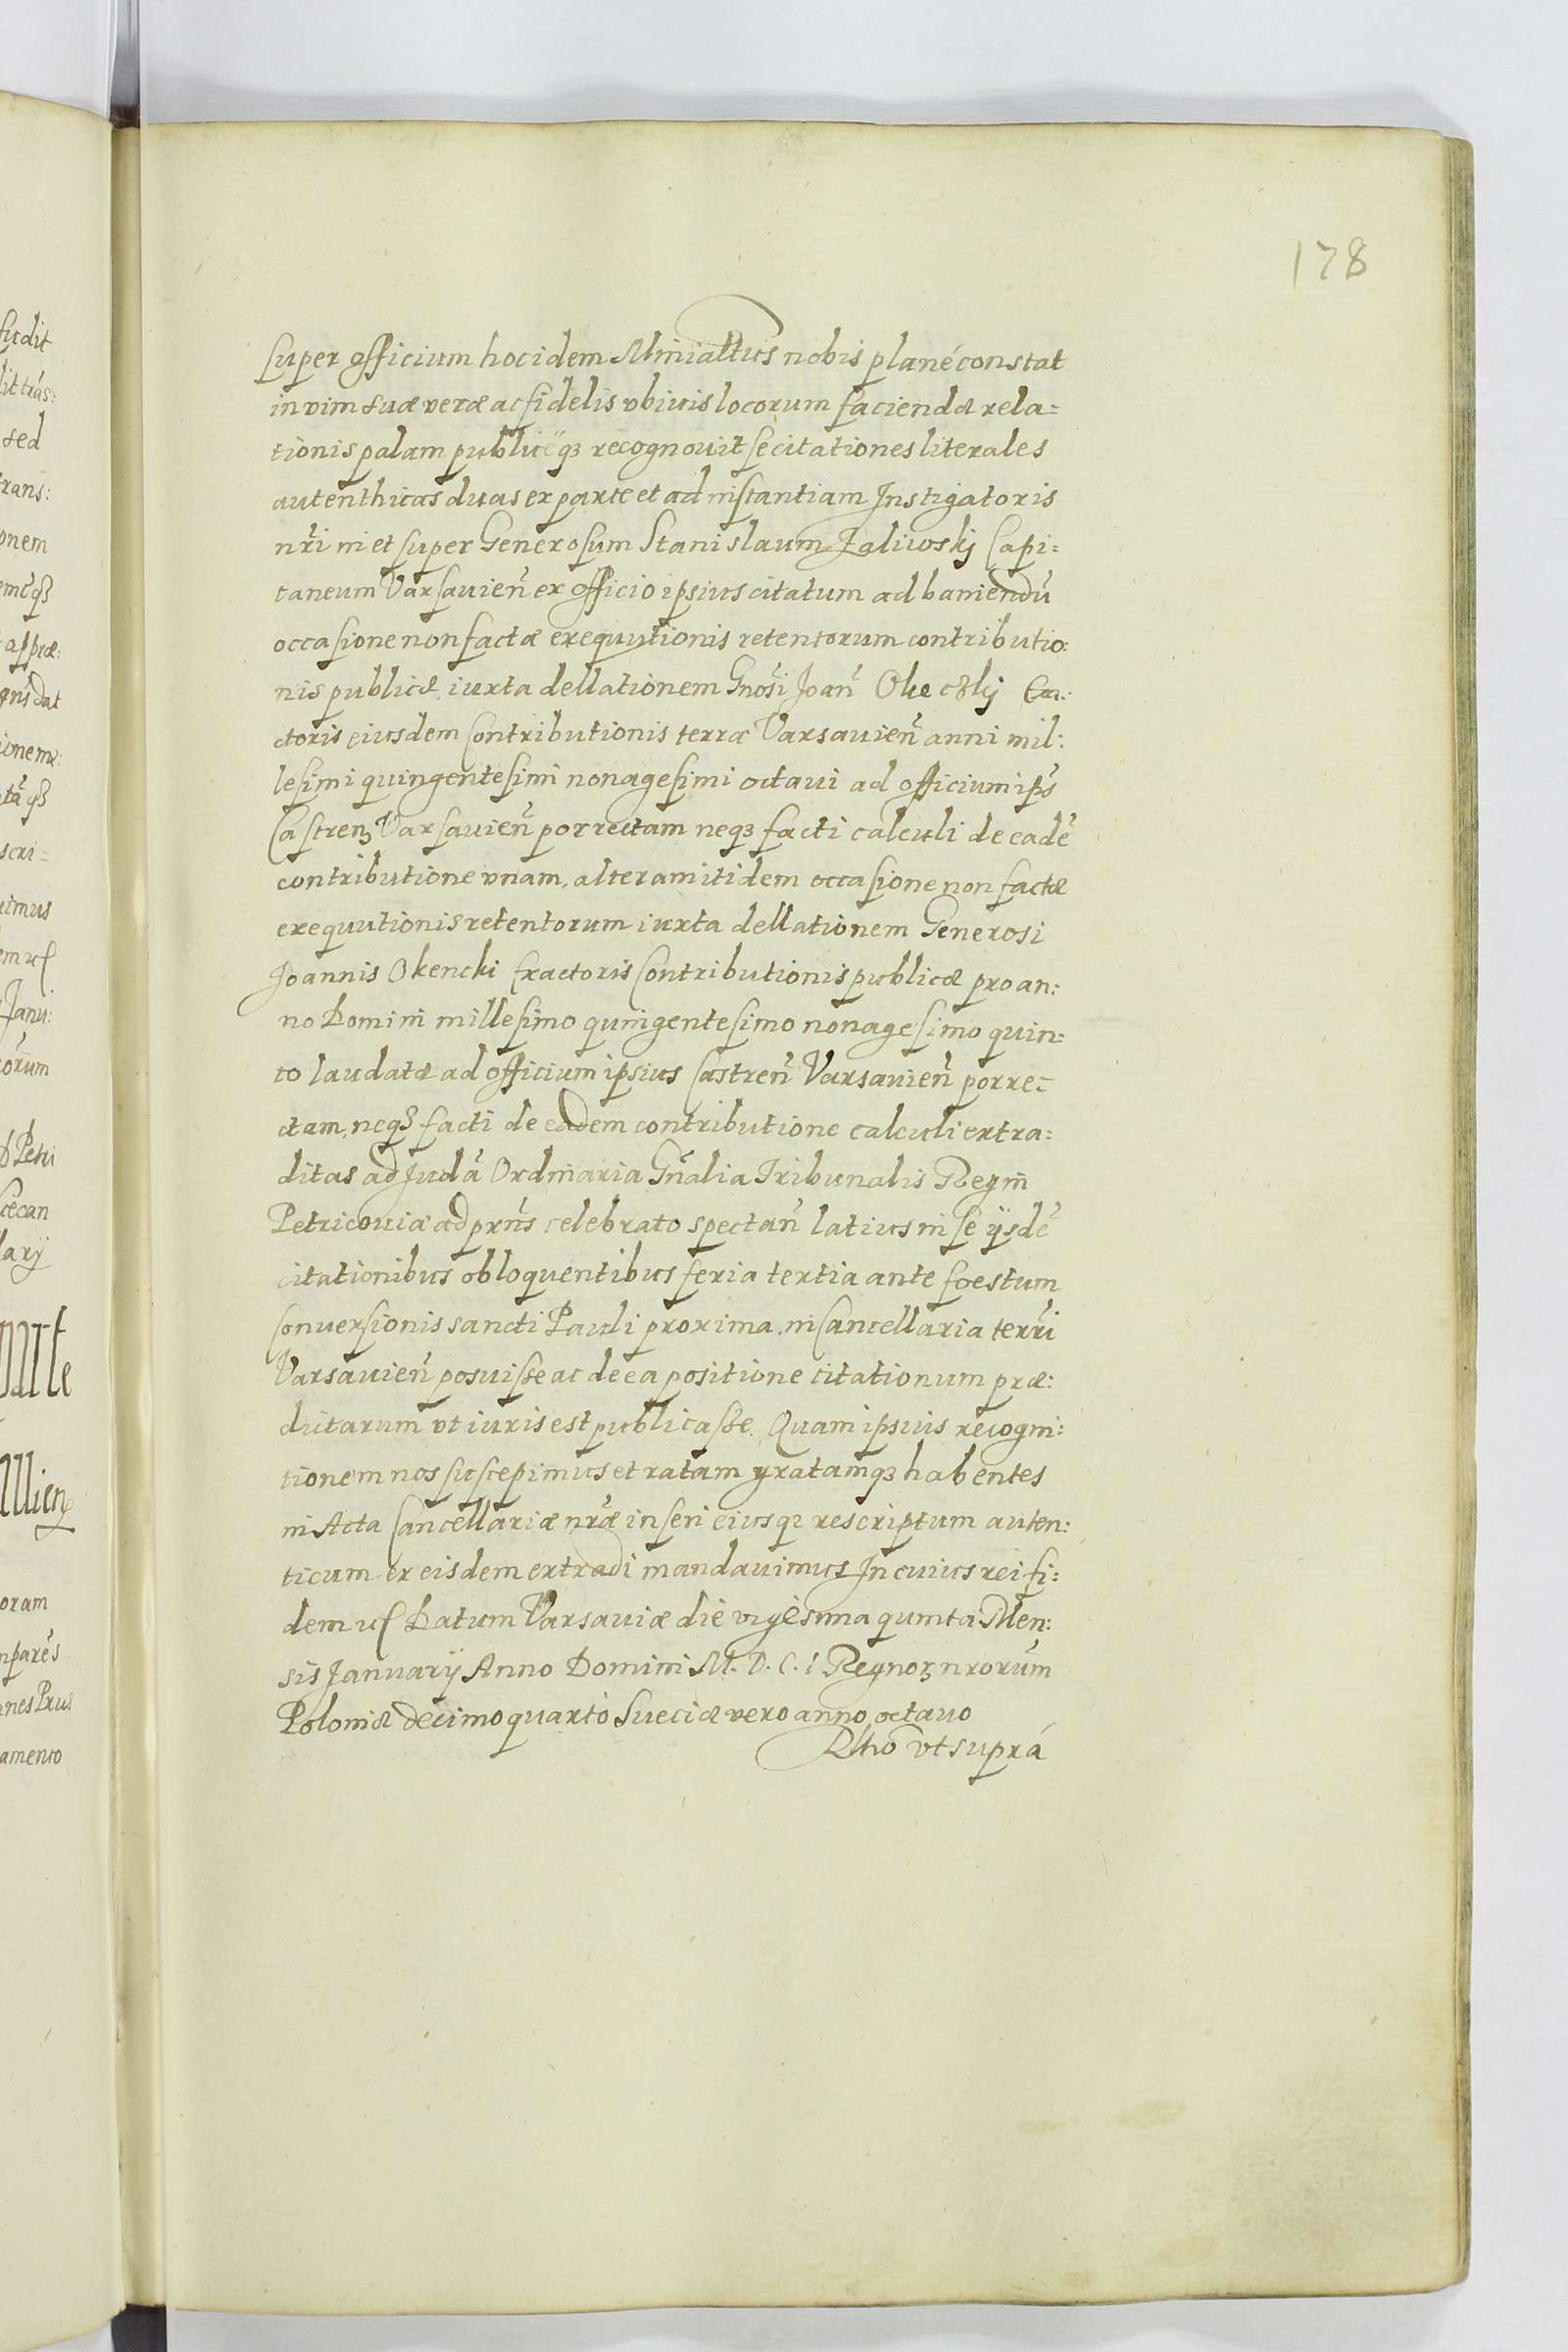 178
super officium hoc idem Ministerialatus nobis plané constat
in vim suæ veræ ac fidelis vbiuis locorum faciendæ rela=
tionis palam publicéq3 recognouit se citationes literales
autenthicas duas ex parte et ad instantiam Instigatoris
nr̃i in et super Generosum Stanislaum Zaliwskj Capi=
taneum Varsauien̄ ex officio ipsius citatum ad baniendū
occasione non factæ exequutionis retentorum contributio:
nis publicæ iuxta dellationem Gnosi Joan̄ Exa:
ctoris eiusdem Contributionis terræ Varsauien̄ anni mil:
lesimi quingentesimi nonagesimi octaui ad officium ips̄
Castren3 Varsauien̄ porrectam neq3 facti calculi de eadē
contributione vnam, alteram itidem occasione non factæ
exequutionis retentorum iuxta dellationem Generosi
Joannis Okencki Exactoris Contributionis publicæ pro an:
no Domini millesimo quingentesimo nonagesimo quin:
to laudatæ ad officium ipsius Castren̄ Varsauien̄ porre=
ctam, neq3 facti de eadem contributione calculi extra=
ditas ad Judā Ordinaria Gn̄alia Tribunalis Regni
Petricouiæ ad prn̄s celebrato spectan̄ latius in se ijsdē
citationibus obloquentibus feria tertia ante foestum
Conuersionis sancti Pauli proxima in Cancellaria terr̃i
Varsauien̄ posuisse ac de ea positione citationum præ:
dictarum vt iuris est publicasse. Quam ipsius recogni:
tionem nos suscepimus et ratam gratamq3 habentes
in Acta Cancellariæ nr̃æ inseri eiusq3 rescriptum auten:
ticum ex eisdem extradi mandauimus In cuius rei fi:
dem Datum Varsauiæ die vigesima quinta Men:
sis Januarij Anno Domini M. D. C. I Regnor3 nrorūm
Poloniæ decimo quarto Sueciæ vero anno octauo
Rltio vt suprá